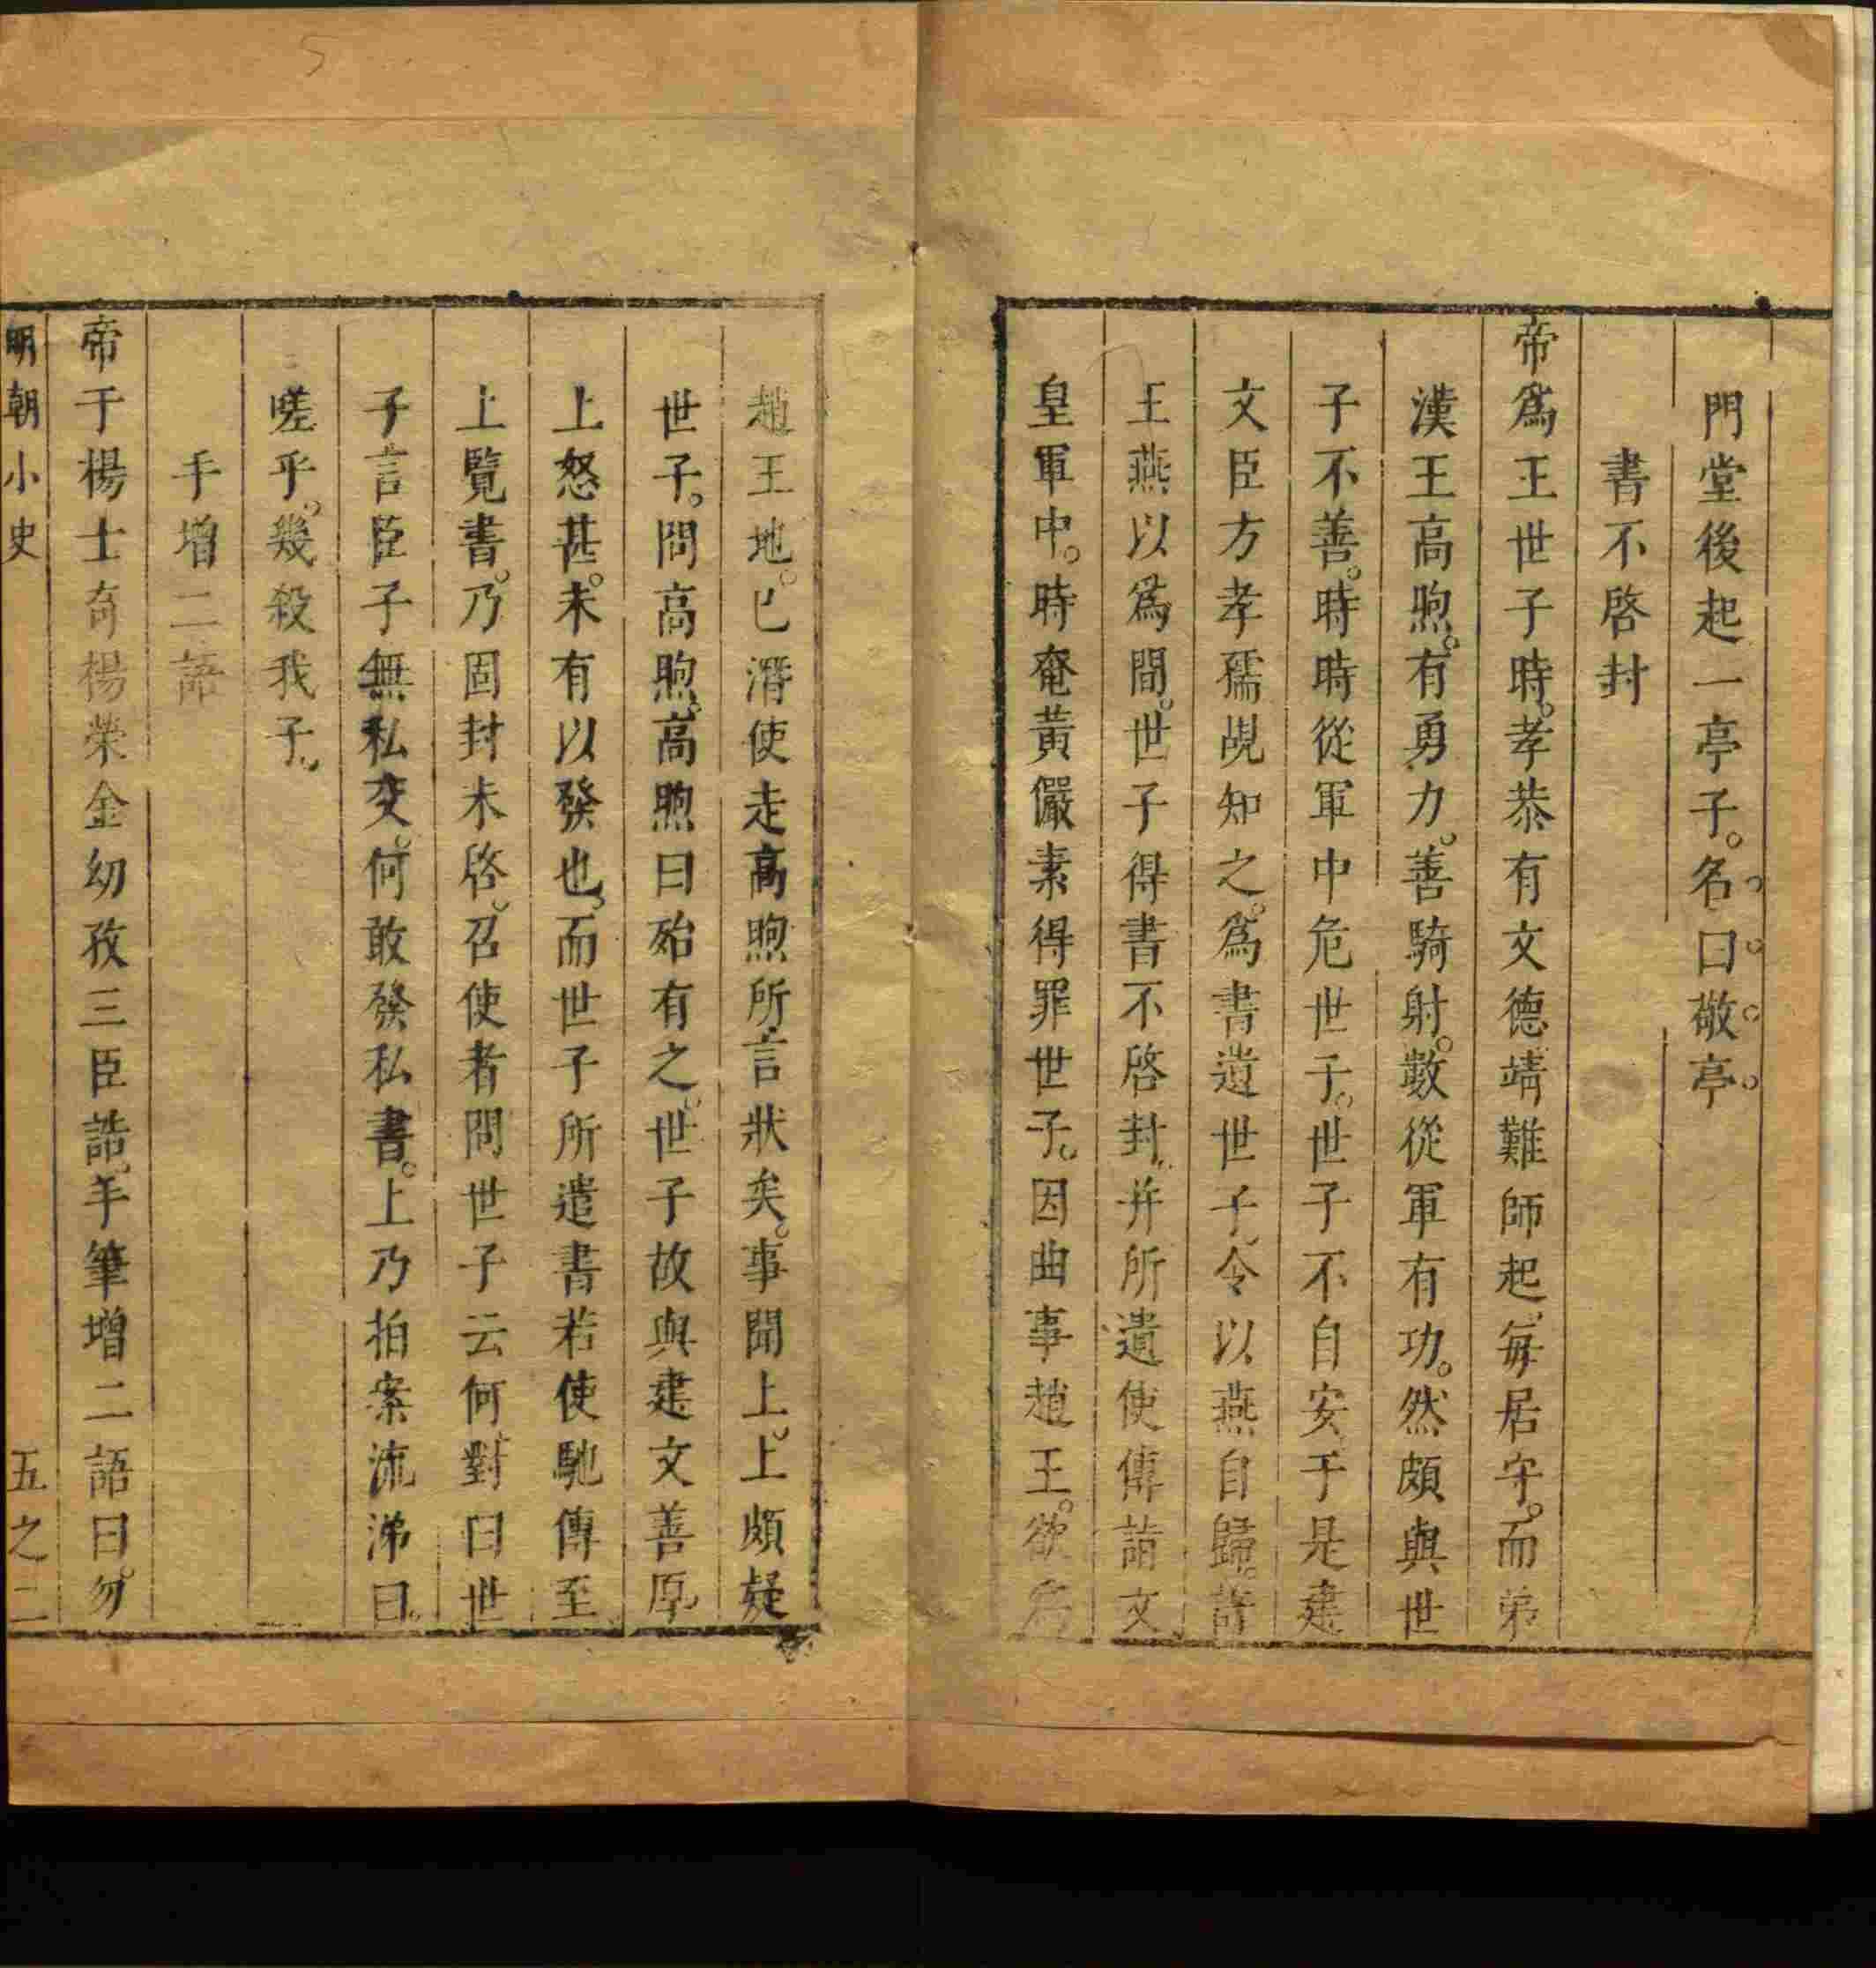 門堂後起一亭子。名曰敬亭
書不啓封
帝爲王世子時。孝恭有文德靖難師起、每居守。而弟
漢王高煦。有勇力。善騎射。數從軍有功。然頗與世
子不善。時時從軍中危世子。世子不自安于是建
文臣方孝孺覘知之。爲書遺世子、令以燕自歸。許
王燕以爲間。世子得書不啓封。并所遺使傳詣文
皇軍中。時奄黃儼素得罪世子。因曲事趙王。欲爲
趙王地。已潛使走高煦所言狀矣。事聞上。上頗疑
世子。問高煦。高煦曰殆有之。世子故與建文善厚。
上怒甚。未有以發也、而世子所遣書若使馳傳至
上覽書。乃固封未啓。召使者問世子云何對曰世
子言臣子無私交。何敢發私書。上乃拍案流涕曰。
嗟乎。幾殺我子。
手增二語
帝于楊士奇楊榮金幼孜三臣誥、手筆增二語曰。勿
明朝小史
五之二
5